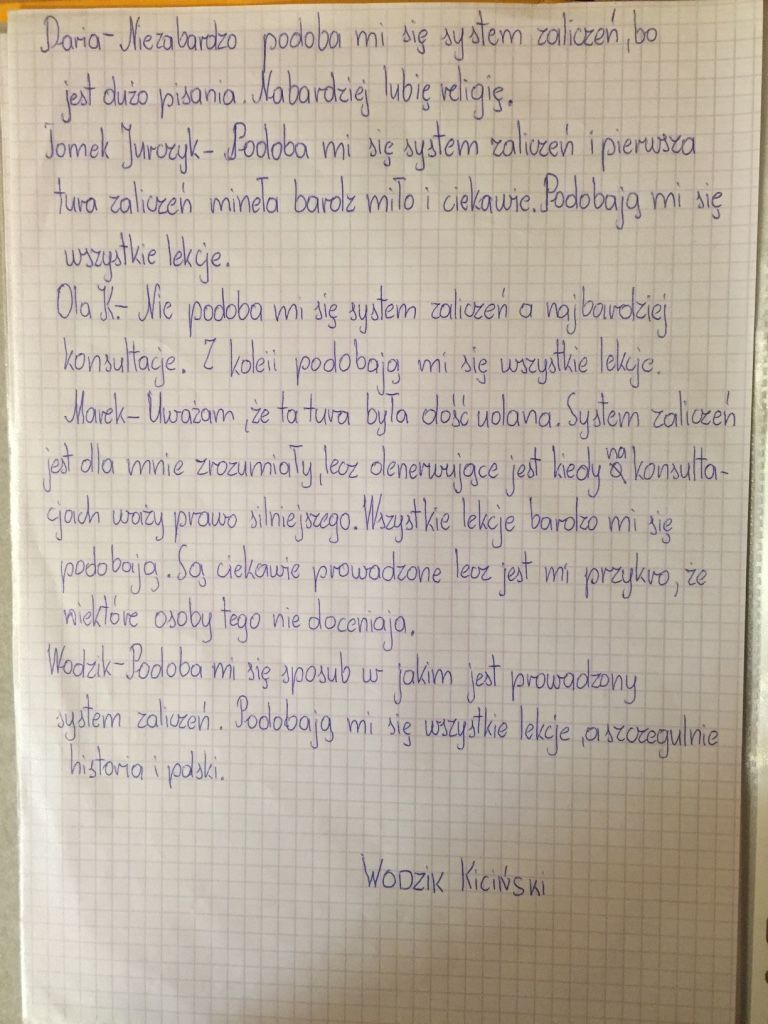 Daria- Niezabardzo podoba mi się system zaliczeń, bo
jest dużo pisania. Nabardziej lubię religię.
Tomek Jurczyk- Podoba mi się system zaliczeń i pierwsza
tura zaliczeń mineła bardz miło i ciekawie. Podobają mi się
wszystkie lekcje.
Ola K.- Nie podoba mi się system zaliczeń a najbardziej
konsultacje. Z koleii podobają mi się wszystkie lekcje.
Marek- Uważam, że ta tura była dość udana. System zaliczeń
jest dla mnie zrozumiały, lecz denerwujące jest kiedy na konsulta-
cjach waży prawo silniejszego. Wszystkie lekcje bardzo mi się
podobają. Są ciekawie prowadzone lecz jest mi przykro, że
niektóre osoby tego nie doceniaja.
Wodzik- Podoba mi się sposub w jakim jest prowadzony
system zaliczeń. Podobają mi się wszystkie lekcje, a szczegulnie
historia i polski.
Wodzik Kiciński